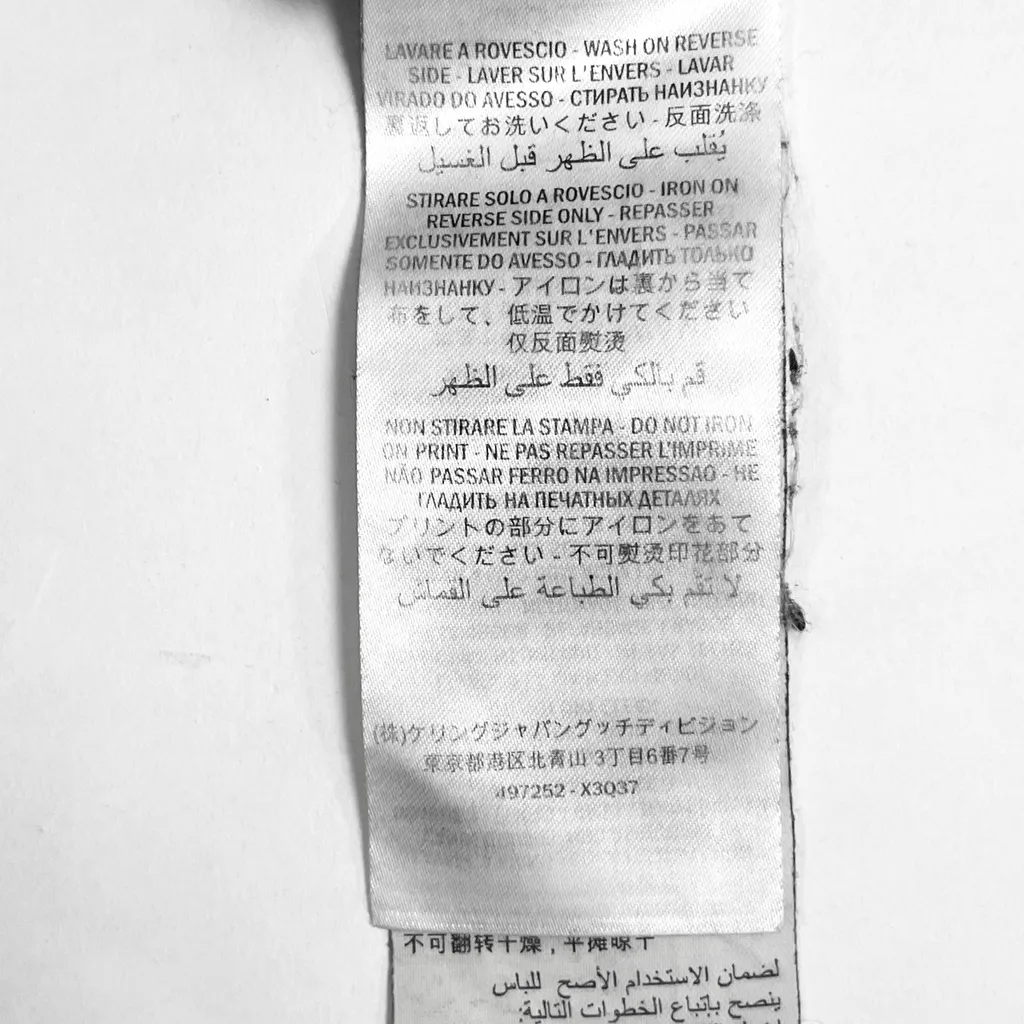 LAVARE A ROVESCIO - WASH ON REVERSE
SIDE - LAVER SUR L'ENVERS - LAVAR
VIRADO DO AVESSO - СТИРАТЬ НАИЗНАНКУ
裏返してお洗いください - 反面洗涤
يُقلب على الظهر قبل الغسيل
STIRARE SOLO A ROVESCIO - IRON ON
REVERSE SIDE ONLY - REPASSER
EXCLUSIVEMENT SUR L'ENVERS - PASSAR
SOMENTE DO AVESSO - ГЛАДИТЬ ТОЛЬКО
НАИЗНАНКУ - アイロンは裏から当て
布をして、低温でかけてください
仅反面熨烫
قم بالكي فقط على الظهر
NON STIRARE LA STAMPA - DO NOT IRON
ON PRINT - NE PAS REPASSER L'IMPRIME
NÃO PASSAR FERRO NA IMPRESSAO - НЕ
ГЛАДИТЬ НА ПЕЧАТНЫХ ДЕТАЛЯХ
プリントの部分にアイロンをあて
ないでください - 不可熨烫印花部分
لا تقم بكي الطباعة على القماش
(株)ケリングジャパングッチディビジョン
東京都港区北青山 3丁目6番7号
497252 - X3Q37
不可翻转干燥，平摊晾干
لضمان الاستخدام الأصح للباس
ينصح بإتباع الخطوات التالية: